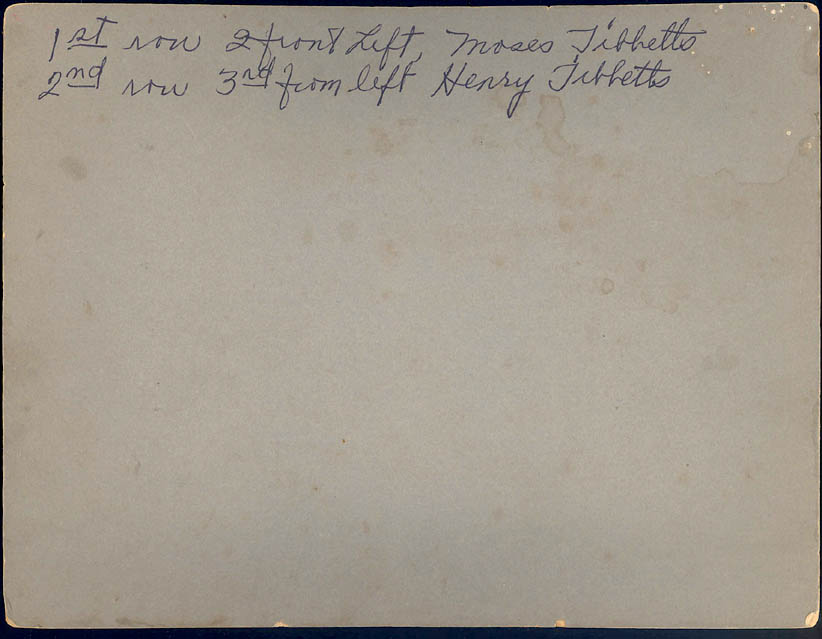 1st row 2 front Left, Moses Tibbetts
2nd row 3rd from left Henry Tibbetts